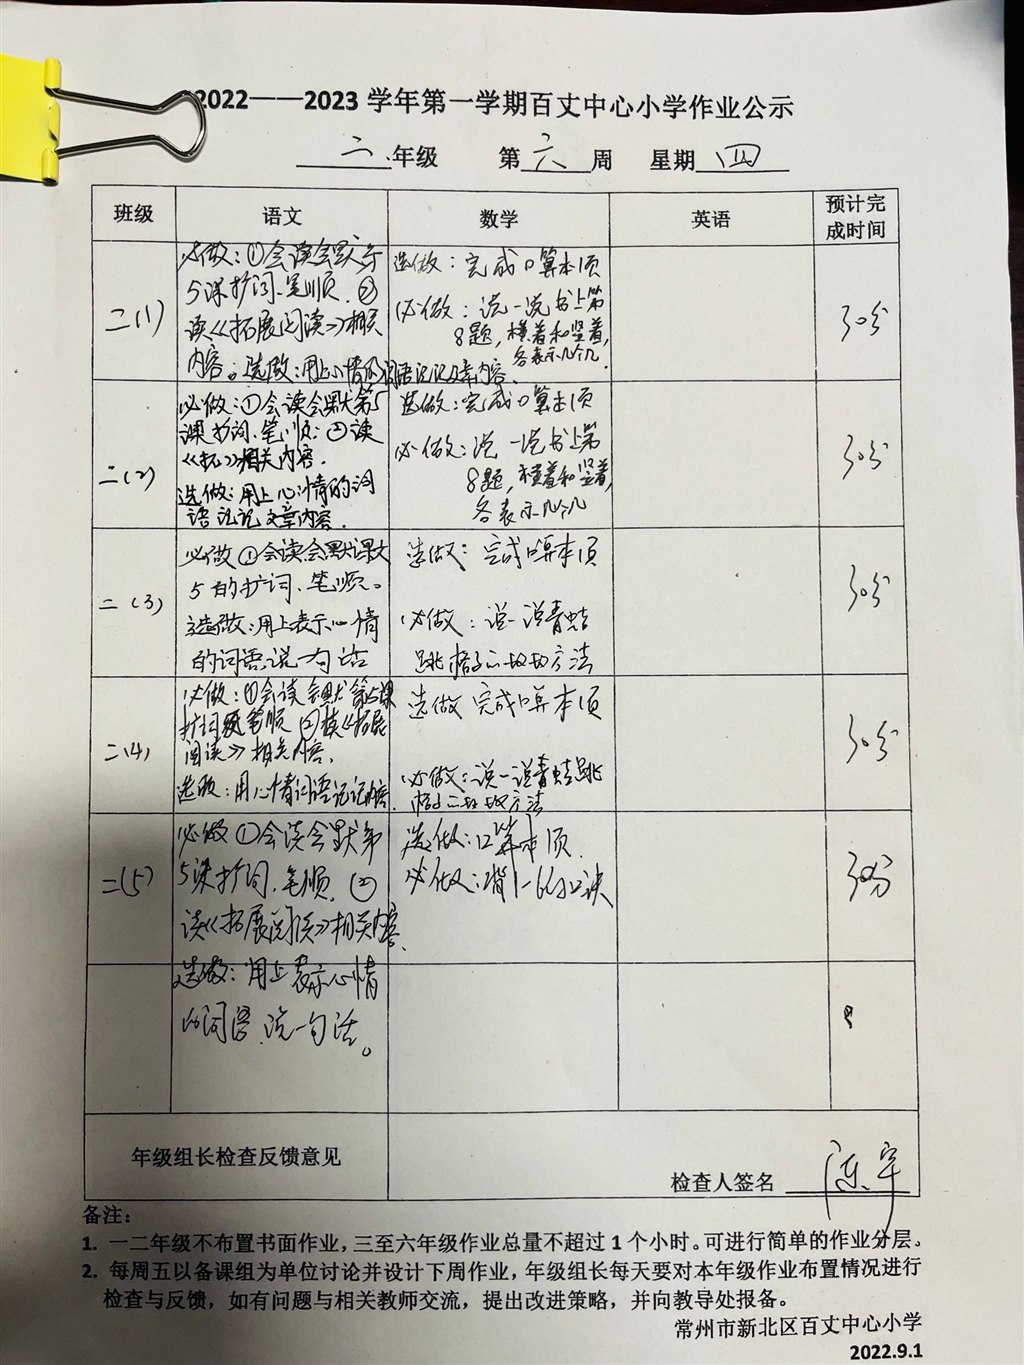 2022——2023学年第一学期百丈中心小学作业公示
二年级 第六周 星期四
班级 语文 数学 英语 预计完成时间
二(1)
必做:①会读会默第
5课扩词、笔顺.②
读《拓展阅读》相关
内容。选做:用上心情的词语记记文章内容.
选做:完成口算本1页
必做:说一说书上第
8题,横着和竖着,
各表示几个几.
30分
二(2)
必做:①会读会默第5
课扩词、笔顺;②读
《拓》相关内容.
选做:用上心情的词
语记记文章内容.
选做:完成口算本1页
必做:说一说书上第
8题,横着和竖着,
各表示几个几
30分
二(3)
必做①会读会默课文
5的扩词、笔顺。
选做:用上表示心情
的词语说一句话
选做:完成口算本1页
必做:说一说青蛙
跳格子 方法
30分
二(4)
必做:①会读会默第5课
扩词 笔顺②读《拓展
阅读》相关内容.
选做:用心情词语记记内容.
选做 完成口算本1页
必做:说一说青蛙跳
格子 方法
30分
二(5)
必做①会读会默第
5课扩词.笔顺.②
读《拓展阅读》相关内容.
选做:用上表示心情
的词语.说一句话。
选做:口算本1页.
必做:背1-6的口诀
30分
年级组长检查反馈意见
检查人签名 陈宇
备注:
1. 一二年级不布置书面作业,三至六年级作业总量不超过1个小时。可进行简单的作业分层。
2. 每周五以备课组为单位讨论并设计下周作业,年级组长每天要对本年级作业布置情况进行
检查与反馈,如有问题与相关教师交流,提出改进策略,并向教导处报备。
常州市新北区百丈中心小学
2022.9.1